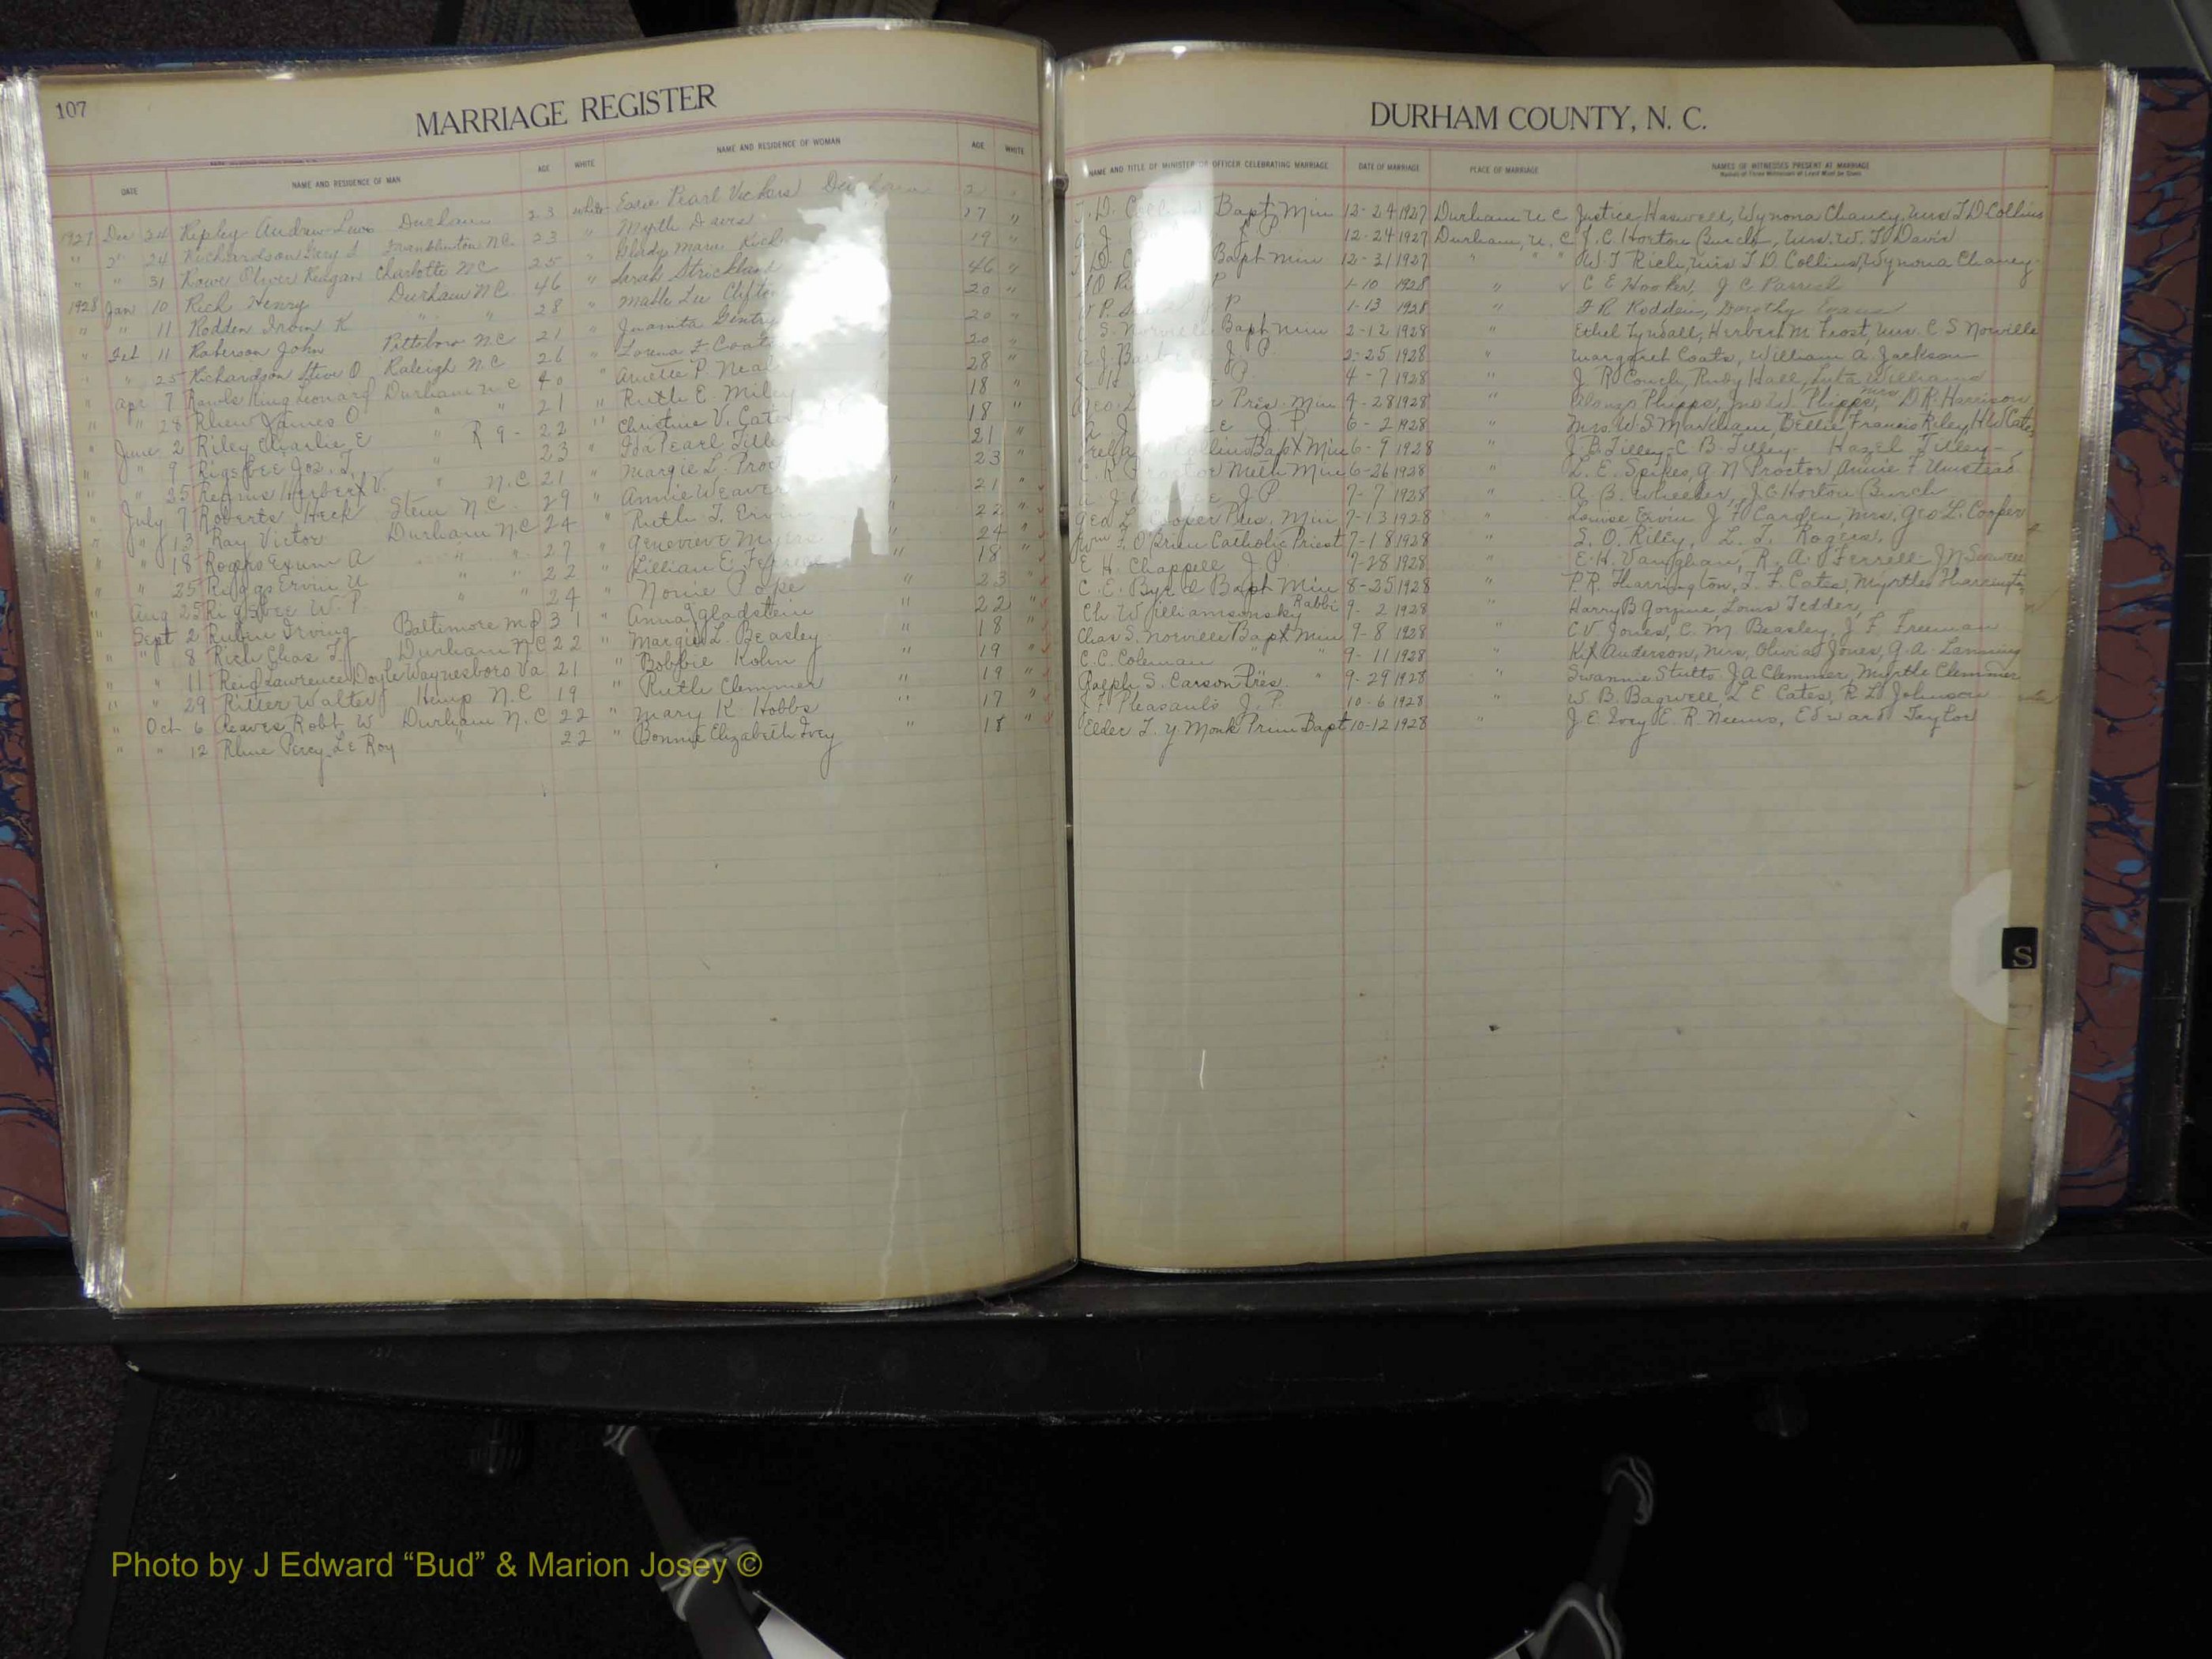 107
MARRIAGE REGISTER
DATE NAME AND RESIDENCE OF MAN AGE WHITE NAME AND RESIDENCE OF WOMAN AGE WHITE
1927 Dec 24 Ripley Andrew Lewis Durham 23 White Pearl Vickers Durham 2
" " 24 Richardson Franklinton N.C. 23 " Myrtle 17 "
" " 31 Rowe Oliver Reagan Charlotte N.C. 25 " Gladys Marie Rich 19 "
1928 Jan 10 Rich Henry Durham N.C. 46 " Sarah Strickland 46 "
" " 11 Rodden K " " 28 " Mable Lee Clifton 20 "
" Feb 11 Roberson John Pittsboro N.C. 21 " Juanita Gentry 20 "
" " 25 Richardson Steve O Raleigh N.C. 26 " Lorena F. Coats 20 "
" Apr 7 Rawls King Leonard Durham N.C. 40 " P. Neal 28 "
" " 28 Rhew James O " " 21 " Ruth E. Miley 18 "
" June 2 Riley Charlie E " R 9 - 22 " Christine V. Cates 18 "
" " 9 Rigsbee Jos. T. " 23 " Ida Pearl Tilley 21 "
" " 25 Herbert V. " N.C. 21 " Margie L. Proctor 23 "
" July 7 Roberts Heck Stem N.C. 29 " Annie Weaver 21 "
" " 13 Ray Victor Durham N.C. 24 " Ruth T. Ervin 22 "
" " 18 Rogers Exum A " " 27 " Genevieve Myers " 24 "
" " 25 Riggs Ervin U " " 22 " Lillian E. " 18 "
" Aug 25 Rigsbee W. P. " " 24 " Nonie Pope " 23 "
" Sept 2 Rubin Irving Baltimore Md 31 " Anna Gladstein " 22 "
" " 8 Rich Chas T. Durham N.C. 22 " Margie L. Beasley " 18 "
" " 11 Reid Lawrence Doyle Waynesboro Va 21 " Bobbie Kohn " 19 "
" " 29 Ritter Walter J Hemp N.C. 19 " Ruth Clemmer " 19 "
" Oct 6 Reaves Robt W Durham N.C. 22 " Mary K Hobbs " 17 "
" " 12 Rhue Percy Le Roy " 22 " Bonnie Elizabeth Ivey 18 "
DURHAM COUNTY, N. C.
NAME AND TITLE OF MINISTER OR OFFICER CELEBRATING MARRIAGE DATE OF MARRIAGE PLACE OF MARRIAGE NAMES OF WITNESSES PRESENT AT MARRIAGE
Names of Three Witnesses at Least Must be Given
T. D. Collins Bapt Min 12-24 1927 Durham N C Justice Haswell, Wynona Chaney, Mrs T D Collins
J. P. 12-24 1927 Durham, N. C J. C. Horton Burch, Mrs. W. T. Davis
Bapt Min 12-31 1927 " " " W T Rich, Mrs T D Collins, Wynona Chaney
1-10 1928 " C E Hooker, J C
J P 1-13 1928 " F R Rodden, Dorothy Evans
C S. Norville Bapt Min 2-12 1928 " Ethel Tyndall, Herbert M Frost, Mrs. C S Norville
A. J. J. P. 2-25 1928 " Margaret Coats, William A. Jackson
P. 4-7 1928 " J R Couch, Ruby Hall, Williams
Geo. L. Pres. Min 4-28 1928 Alonzo Phipps, Jno W. Phipps, Mrs D R Harrison
A J J. P. 6-2 1928 " Mrs. W. S Markham, Bettie Francis Riley, H W Cates
Collins Bapt Min 6-9 1928 " J. B. Tilley - C. B. Tilley - Hazel Tilley -
E. R. Proctor Meth Min 6-26 1928 " L. E. Spikes, G N Proctor, Annie F Umstead
A. J. J P 7-7 1928 " A B. Wheeler, J. C. Horton Burch
Geo L Cooper Pres. Min 7-13 1928 " Louise Ervin J F Carden, Mrs. Geo L. Cooper
Wm F. O'Brien Catholic Priest 7-18 1928 " O. Riley, L. S. Rogers,
E H. Chappell J. P. 7-28 1928 " E. H. Vaughan, R. A. Ferrell - J N
C. E. Byrd Bapt Min 8-25 1928 " P. R. Harrington, T. F. Cates, Myrtle Harrington
Ch Williamsonsky Rabbi 9-2 1928 " Harry B Louis Tedder,
Chas S. Norville Bapt Min 9-8 1928 " C V Jones, C. M Beasley, J F Freeman
C. C. Coleman " " 9-11 1928 " Anderson, Mrs. Olivia Jones, G. A. Lanning
Ralph S. Carson Pres. " 9-29 1928 " Swannie Stutts J A Clemmer, Myrtle Clemmer
Pleasants J. P. 10-6 1928 " W. B. Bagwell, L E Cates, R L Johnson
Elder T. Y Monk Prim Bapt 10-12 1928 " J. E. Ivey E. R. Edward Taylor
S
Photo by J Edward “Bud” & Marion Josey ©